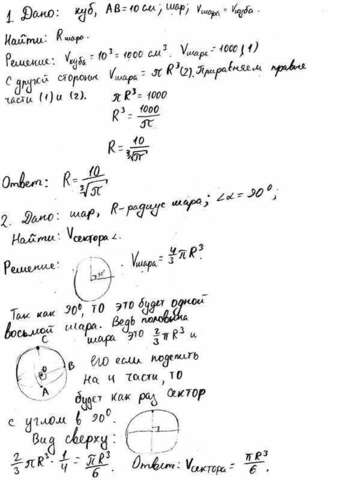 1. Дано: куб, AB = 10 см; шар, Vшара = Vкуба.
Найти: Rшара.
Решение: Vкуба = 10³ = 1000 см³. Vшара = 1000 (1)
С другой стороны Vшара = πR³ (2). Приравняем правые
части (1) и (2). πR³ = 1000
R³ = 1000/π
R = 10/∛π
Ответ: R = 10/∛π
2. Дано: шар, R-радиус шара; ∠α = 90°;
Найти: Vсектора ∠.
Решение: Vшара = 4/3 πR³.
Так как 90°, то это будет одной
восьмой шара. Ведь половина
шара это 2/3 πR³ и
C
B
A
его если поделить
на 4 части, то
будет как раз сектор
с углом в 90°.
Вид сверху:
2/3 πR³ · 1/4 = πR³/6. Ответ: Vсектора = πR³/6.